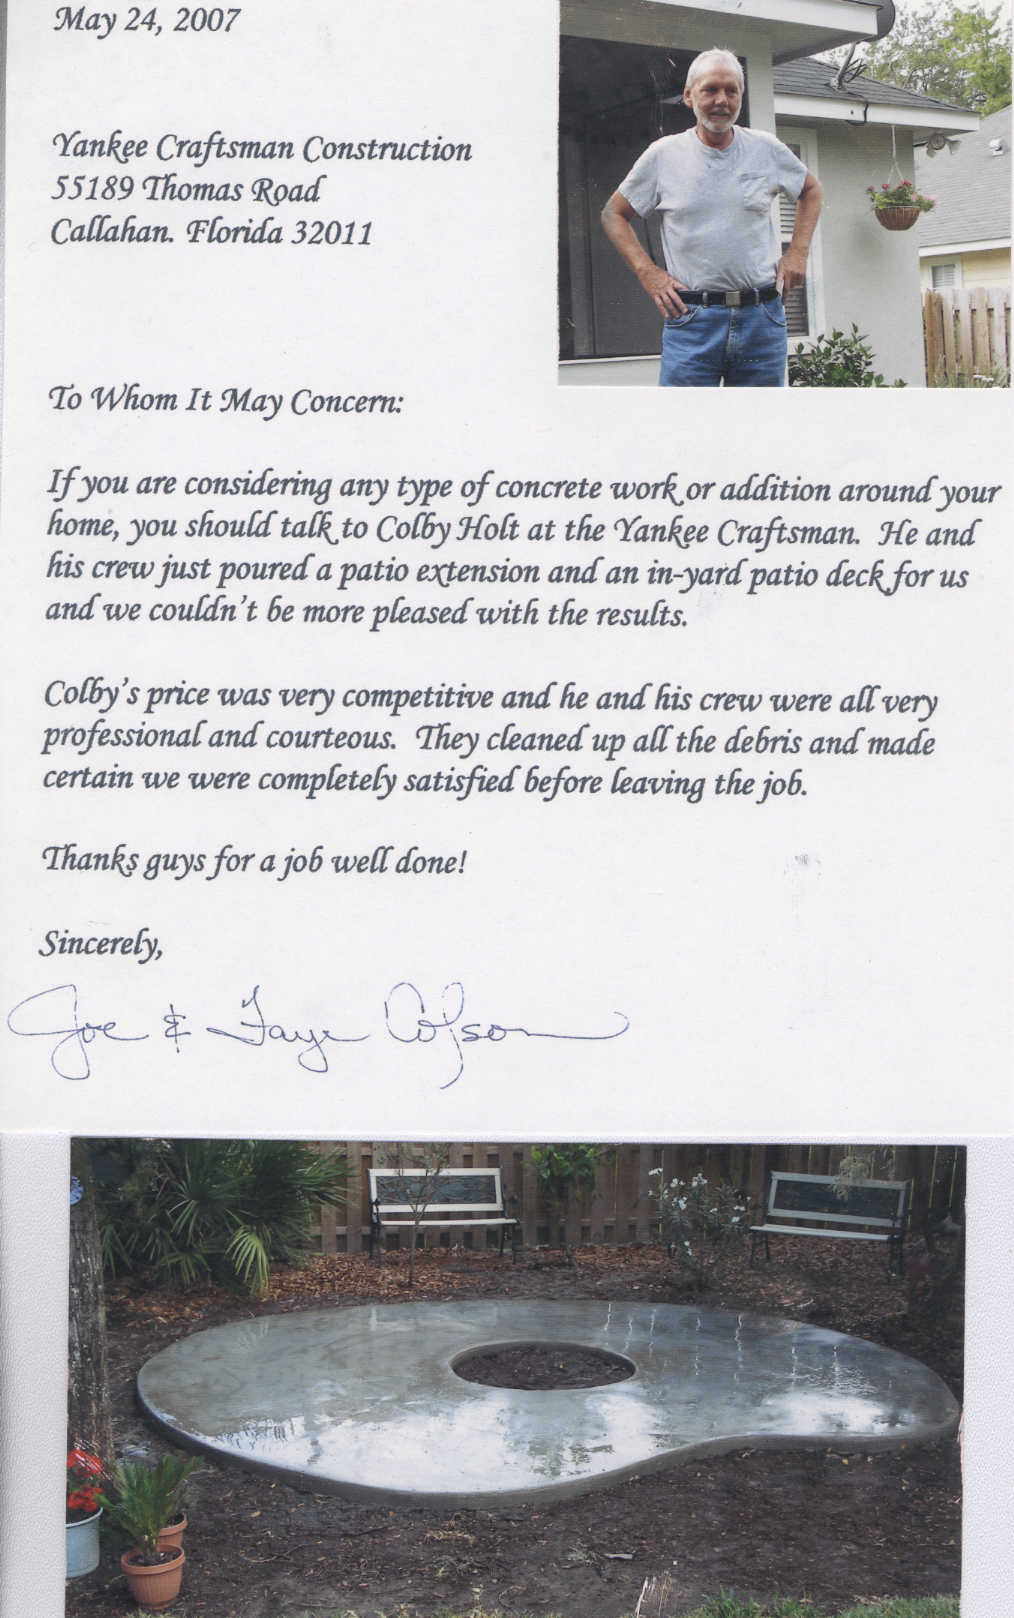 May 24, 2007
Yankee Craftsman Construction
55189 Thomas Road
Callahan. Florida 32011
To Whom It May Concern:
If you are considering any type of concrete work or addition around your
home, you should talk to Colby Holt at the Yankee Craftsman.  He and
his crew just poured a patio extension and an in-yard patio deck for us
and we couldn't be more pleased with the results.
Colby's price was very competitive and he and his crew were all very
professional and courteous.  They cleaned up all the debris and made
certain we were completely satisfied before leaving the job.
Thanks guys for a job well done!
Sincerely,
Joe & Faye Colson